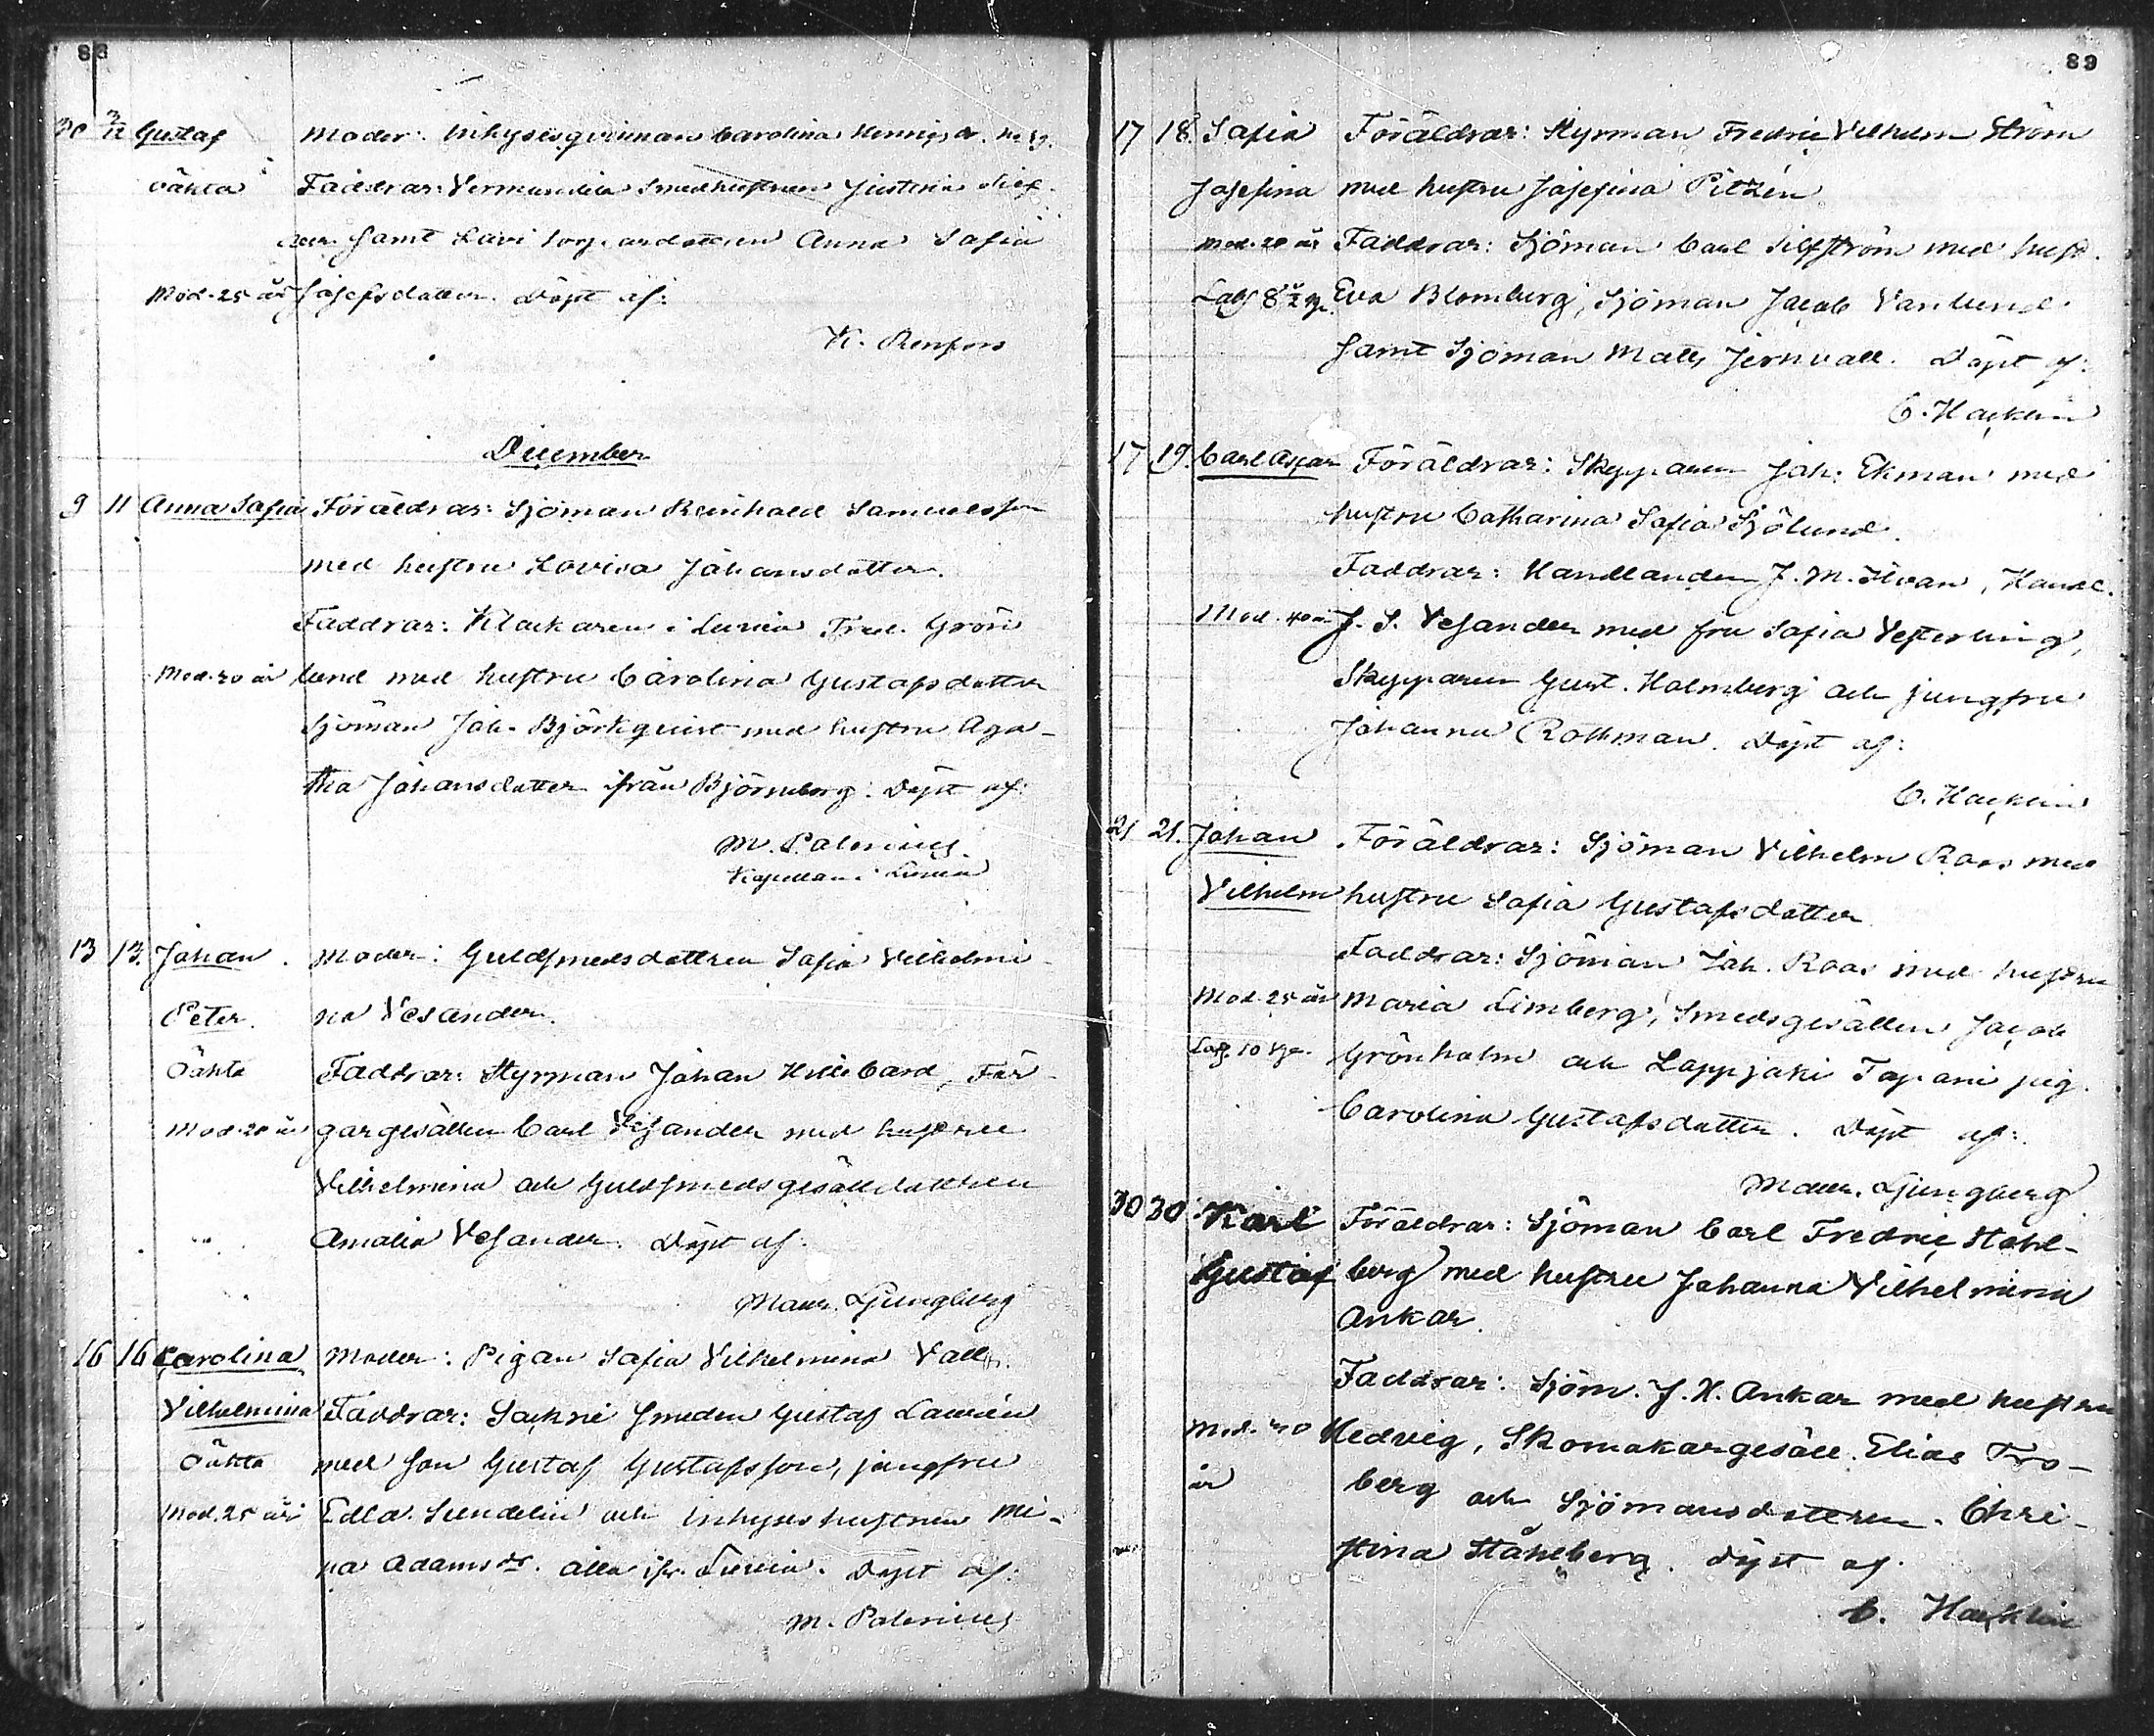 88
30 3/12 Gustaf Moder: Inhysesqvinnan Carolina Henriksdr.
oäkta Faddrar: Smedhustrun Justina
samt Anna Sofia
Mod. 25 år Josefsdotter. Döpt af:
K. Renfors
December
9 11 Anna Sofia Föräldrar: Sjöman Reinhold Samuelsson
med hustru Lovisa Johansdotter.
Faddrar: Klockaren i Luvia Fred. Grön
Mod. 20 år lund med hustru Carolina Gustafsdotter
Sjöman Joh. Björkqvist med hustru Aga-
tha Johansdotter ifrån Björneborg. Döpt af:
M. Palenius.
Kapellan i Luvia
13 13. Johan Moder: Guldsmedsdottren Sofia Vilhelmi
Peter. na Vesander.
Oäkta Faddrar: Styrman Johan Hillebard, Fär-
Mod. 20 år gargesällen Carl Vesander med hustru
Vilhelmina och Guldsmedsgesälldottren
Amalia Vesander. Döpt af:
Maur. Ljungberg
16 16 Carolina Moder: Pigan Sofia Vilhelmina Vall
Vilhelmina Faddrar: Smeden Gustaf Laurén
Oäkta med son Gustaf Gustafsson, jungfru
Mod. 25 år Edla Sundelin och Inhyseshustrun Mi-
na Adamsdr. alla ifr. Luvia. Döpt af:
M. Palenius
89
17 18. Sofia Föräldrar: Styrman Fredric Vilhelm Ström
Josefina med hustru Josefina Pitzén
Mod. 20 år Faddrar: Sjöman Carl Silfström med hust.
Eva Blomberg, Sjöman Jacob Vanlund
samt Sjöman Matts Jernvall. Döpt af:
C. Hacklin
17 19. Carl Oscar Föräldrar: Skepparen Joh. Ekman med
hustru Catharina Sofia Sjölund.
Faddrar: Handlanden J. M. Ilvan, Handl.
Mod. 40 år J. S. Vesander med fru Sofia Vesterling,
Skepparen Gust. Holmberg och jungfru
Johanna Rothman. Döpt af:
C. Hacklin
21 21. Johan Föräldrar: Sjöman Vilhelm Roos med
Vilhelm hustru Sofia Gustafsdotter
Faddrar: Sjöman Joh. Roos med hustru
Mod. 25 år Maria Limberg, Smedsgesällen Jacob
Grönholm och Lappjoki Tapani pig.
Carolina Gustafsdotter. Döpt af:
Maur. Ljungberg
30 30 Karl Föräldrar: Sjöman Carl Fredric Stohl-
Gustaf berg med hustru Johanna Vilhelmina
Ankar.
Faddrar: Sjöm. J. H. Ankar med hustru
Mod. 40 Hedvig, Skomakargesäll. Elias Fro-
år berg och Sjömansdottren Chri-
stina Ståhlberg. Döpt af.
C. Hacklin